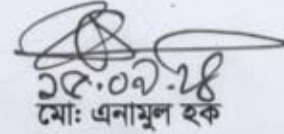 ১৫.০৯.২৪
মোঃ এনামুল হক